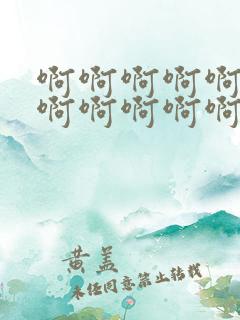 啊啊啊啊啊
啊啊啊啊啊
黄盖
未经同意禁止转载